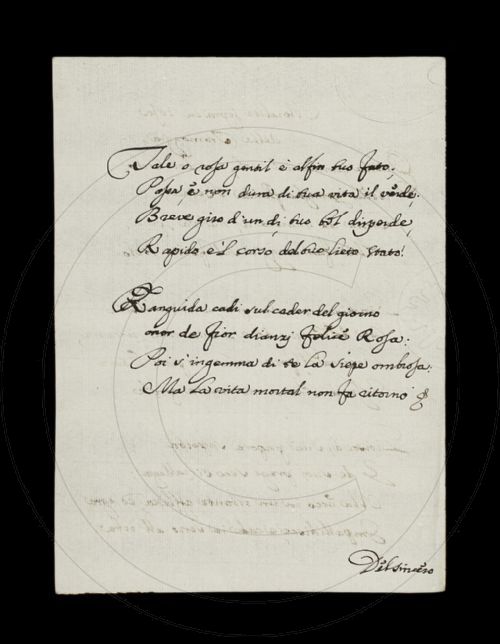 Tale ò rosa gentil è al fin tuo fato:
Posa, e non dura di tua vita il verde:
Breve giro d'un di tuo bel disperde,
Rapido è 'l corso del tuo lieto stato!
Languida cadi sul cader del giorno
onor de fior dianzi felice Rosa:
Poi s'ingemma di te la siepe ombrosa:
Ma La vita mortal non fa ritorno
Del sincero